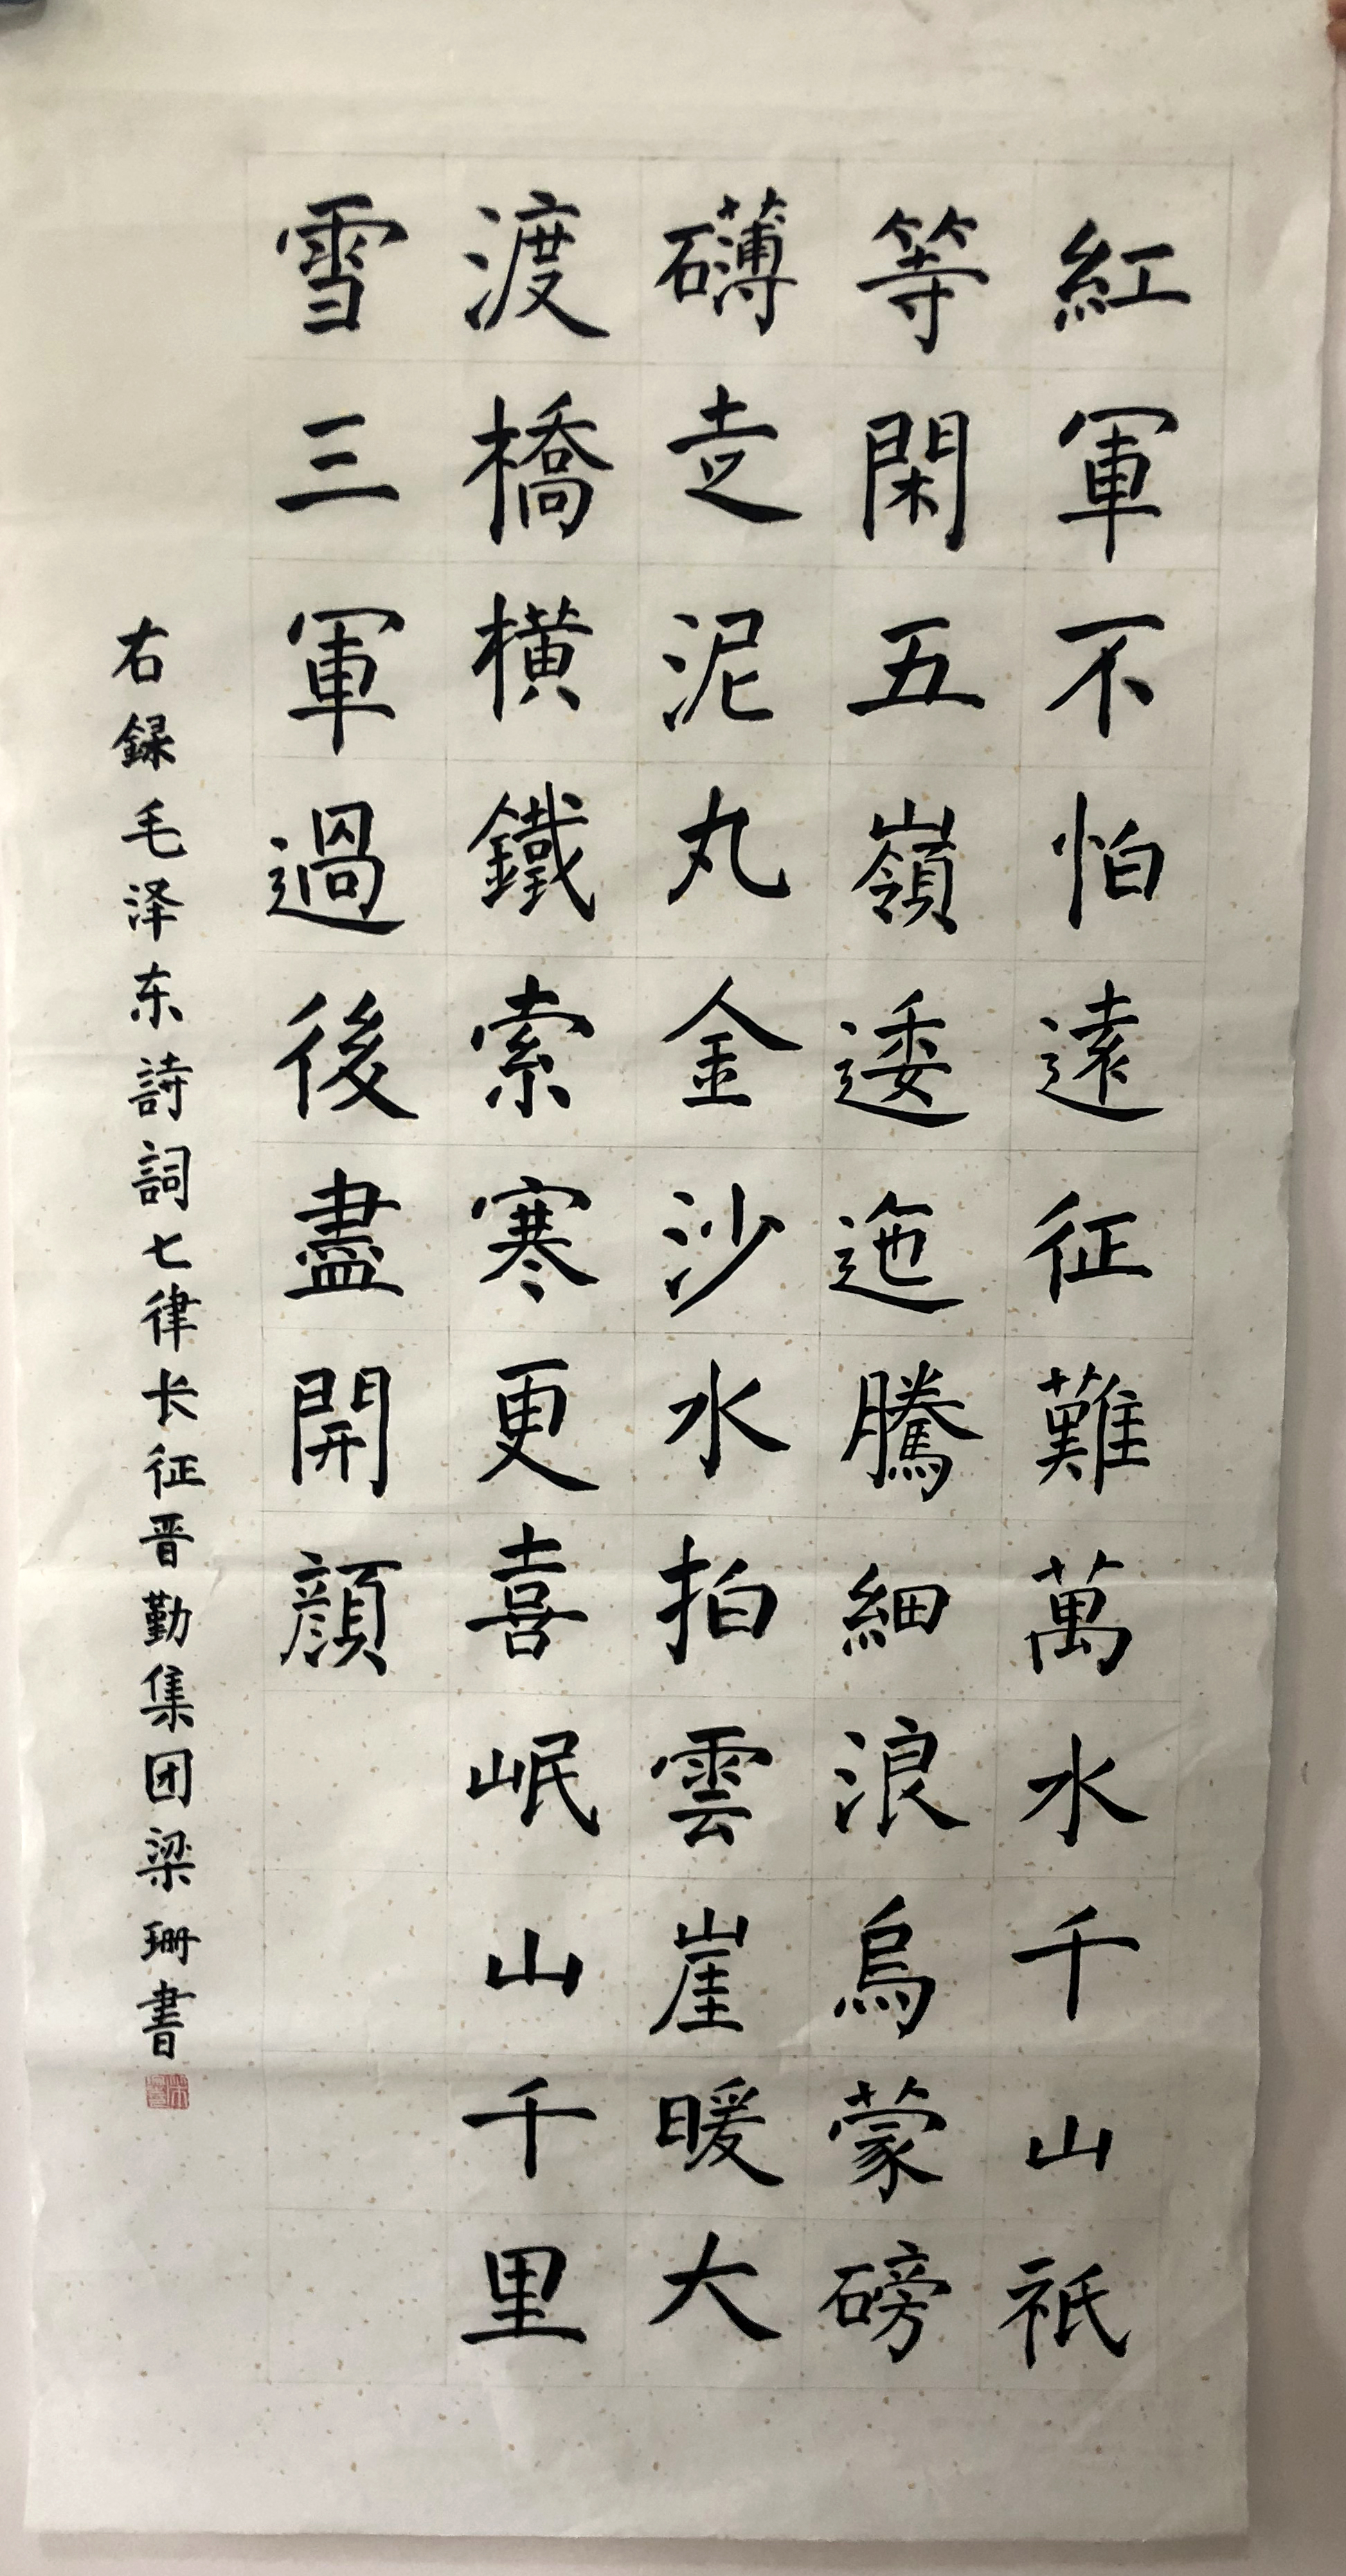 紅軍不怕遠征難萬水千山祇
等閑五嶺逶迤騰細浪烏蒙磅
礴走泥丸金沙水拍雲崖暖大
渡橋橫鐵索寒更喜岷山千里
雪三軍過後盡開顏
右録毛泽东詩詞七律长征晋勤集团梁珊書